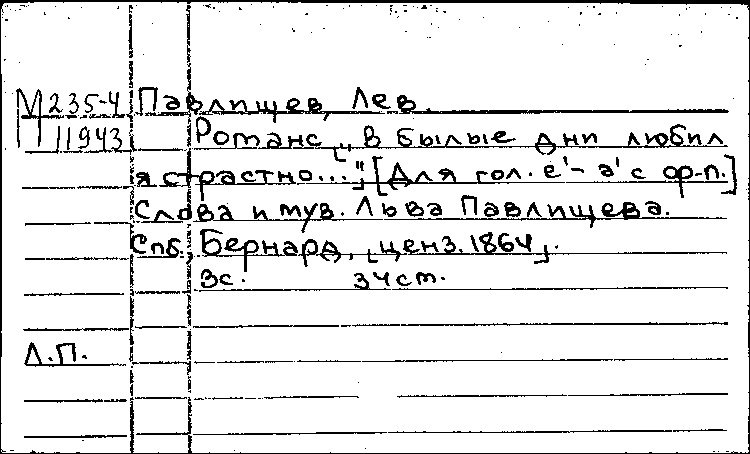 М 235-4 Павлищев, Лев.
11943 Романс „В былые дни любил
я страстно..." [Для гол. e'-a' с ф-п.]
Слова и муз. Льва Павлищева.
Спб., Бернард, [ценз. 1864].
3с. 34см.
Л.П.